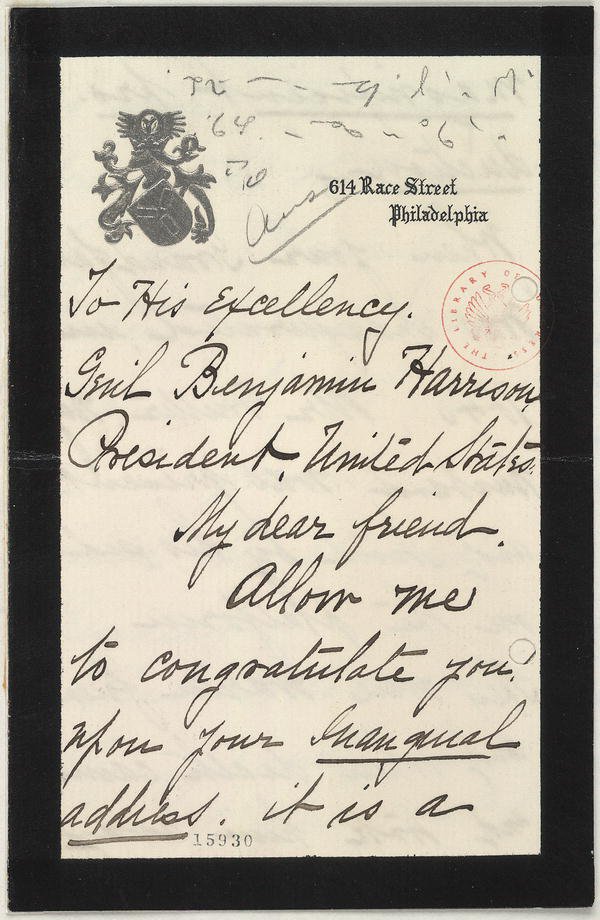 Ans
614 Race Street
Philadelphia
THE LIBRARY OF CONGRESS
To His Excellency.
Genl Benjamin Harrison
President. United States.
My dear friend.
Allow me
to congratulate you.
upon your Inaugural
address. it is a
15930